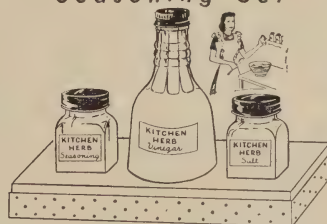 Seasoning Set
KITCHEN
HERB
Seasoning
KITCHEN
HERB
Vinegar
KITCHEN
HERB
Salt